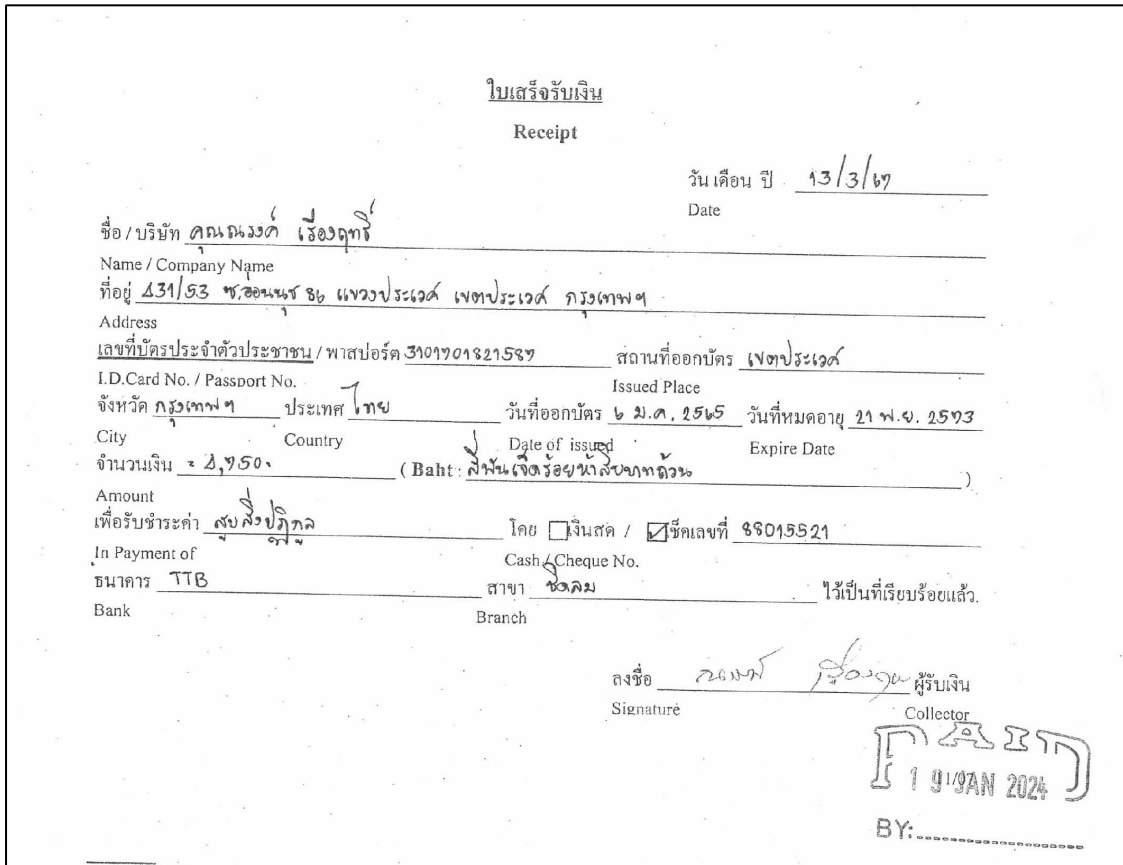 ใบเสร็จรับเงิน
Receipt
วัน เดือน ปี 13/3/67
Date
ชื่อ / บริษัท คุณณรงค์ เรืองฤทธิ์
Name / Company Name
ที่อยู่ 431/53 ซ.อ่อนนุช 86 แขวงประเวศ เขตประเวศ กรุงเทพฯ
Address
เลขที่บัตรประจำตัวประชาชน / พาสปอร์ต 3101701821587 สถานที่ออกบัตร เขตประเวศ
I.D.Card No. / Passport No. Issued Place
จังหวัด กรุงเทพฯ ประเทศ ไทย วันที่ออกบัตร 6 ม.ค. 2565 วันที่หมดอายุ 21 พ.ย. 2573
City Country Date of issued Expire Date
จำนวนเงิน = 4,750. ( Baht : สี่พันเจ็ดร้อยห้าสิบบาทถ้วน )
Amount
เพื่อรับชำระค่า สูบสิ่งปฏิกูล โดย เงินสด / เช็คเลขที่ 88015521
In Payment of Cash / Cheque No.
ธนาคาร TTB สาขา ชิดลม ไว้เป็นที่เรียบร้อยแล้ว.
Bank Branch
ลงชื่อ ณรงค์ ผู้รับเงิน
Signature Collector
PAID
19 JAN 2024
BY: